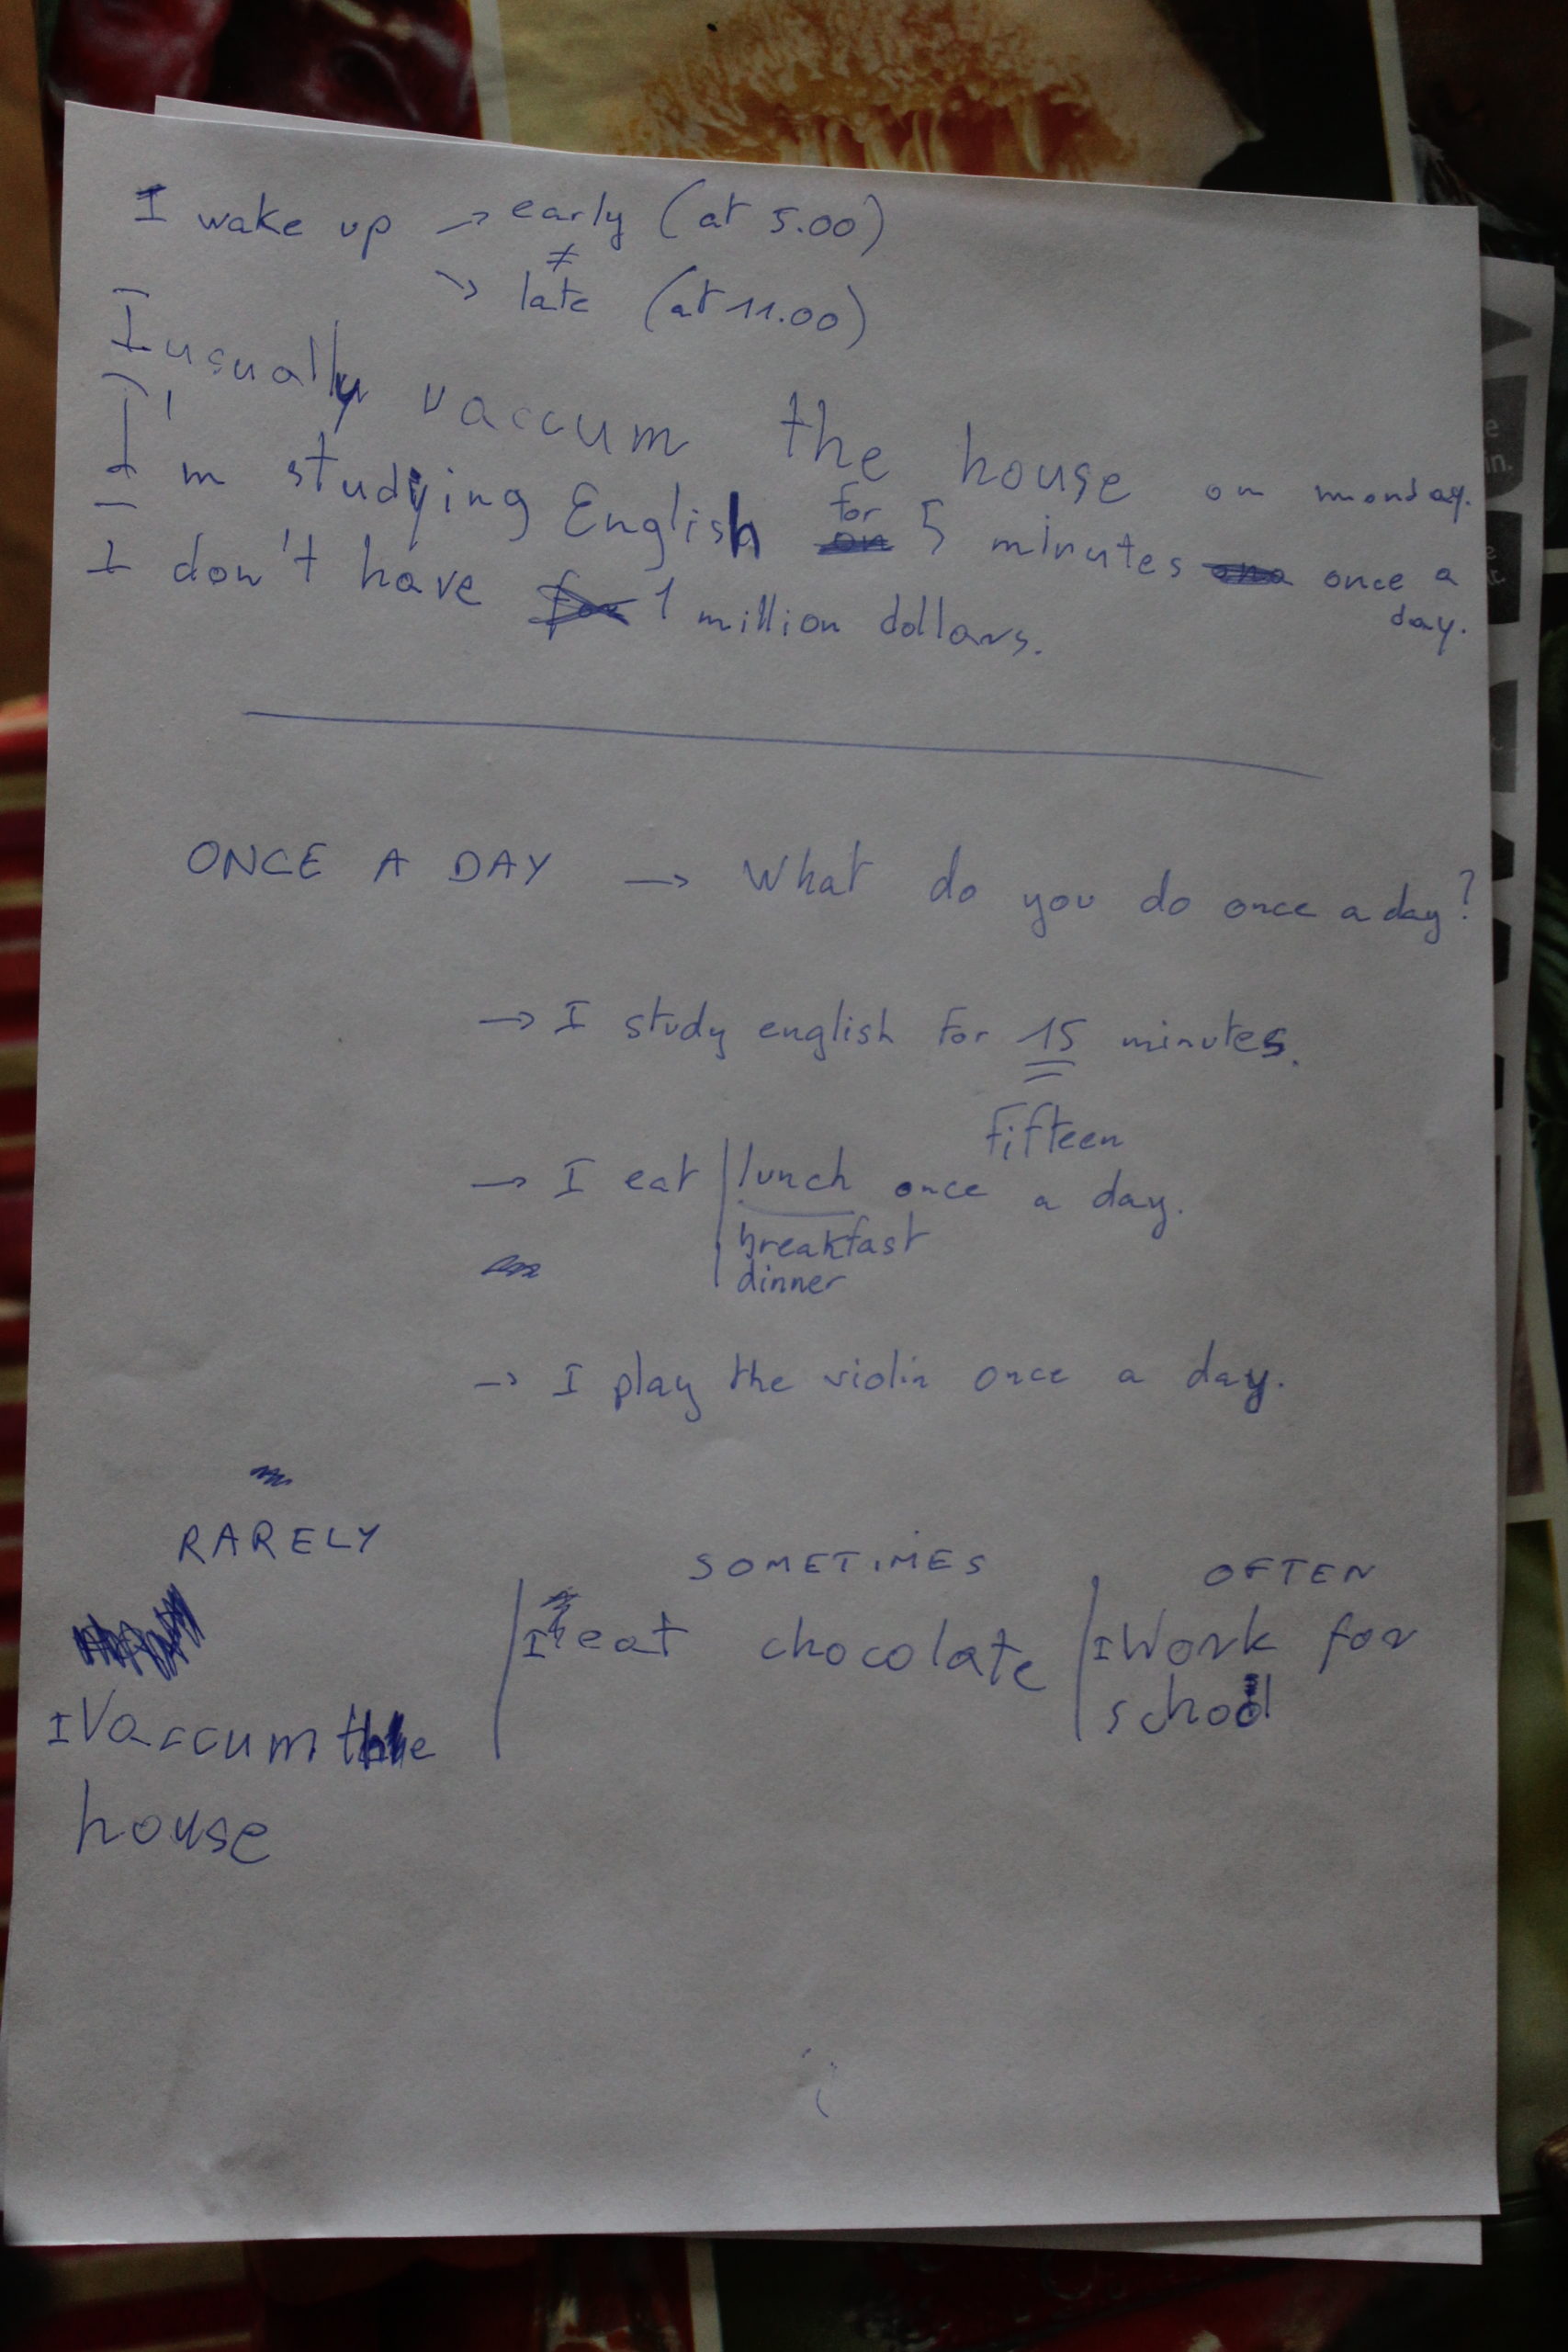 I wake up → early (at 5.00)
≠
↘ late (at 11.00)
I usually vaccum the house on monday.
I'm studying English for 5 minutes once a
day.
I don't have 1 million dollars.
ONCE A DAY → What do you do once a day?
→ I study english for 15 minutes.
fifteen
→ I eat lunch once a day.
breakfast
dinner
→ I play the violin once a day.
RARELY
I Vaccum the
house
SOMETIMES
I eat chocolate
OFTEN
I Work for
school